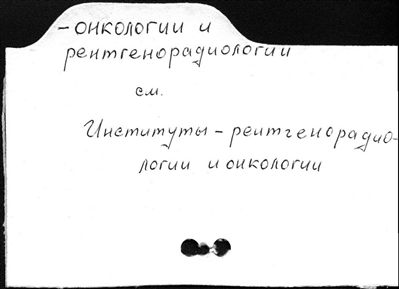 - онкологии и
рентгенорадиологии
см.
Институты - рентгенорадио-
логии и онкологии